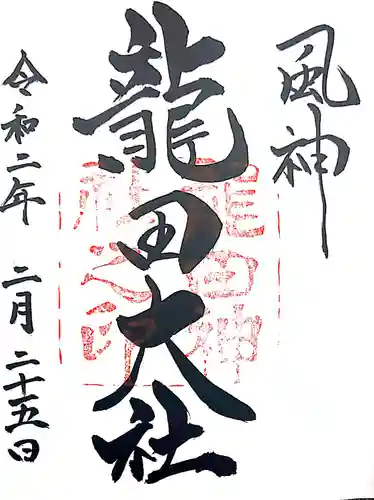 風神
龍田大社
令和二年 二月 二十五日
龍田神
社之印